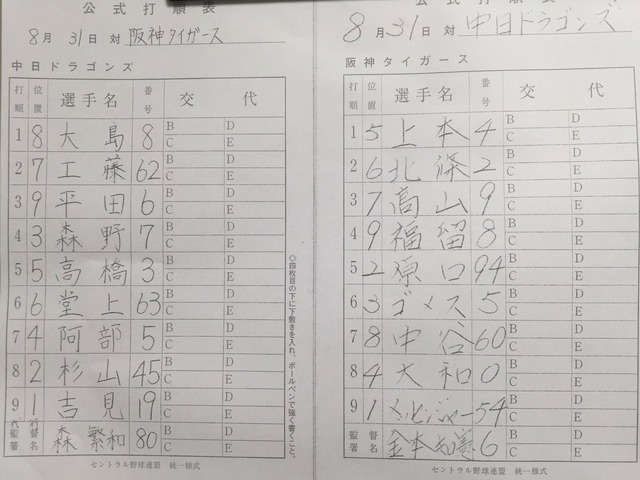 公式打順表
8月31日 対 阪神タイガース
中日ドラゴンズ
打順 位置 選手名 番号 交代
1 8 大島 8 B D C E
2 7 工藤 62 B D C E
3 9 平田 6 B D C E
4 3 森野 7 B D C E
5 5 高橋 3 B D C E
6 6 堂上 63 B D C E
7 4 阿部 5 B D C E
8 2 杉山 45 B D C E
9 1 吉見 19 B D C E
代行監督署名 森繁和 80
セントラル野球連盟 統一様式
◎四枚目の下に下敷きを入れ、ボールペンで強く書くこと。
公式打順表
8月31日 対 中日ドラゴンズ
阪神タイガース
打順 位置 選手名 番号 交代
1 5 上本 4 B D C E
2 6 北條 2 B D C E
3 7 高山 9 B D C E
4 9 福留 8 B D C E
5 2 原口 94 B D C E
6 3 ゴメス 5 B D C E
7 8 中谷 60 B D C E
8 4 大和 0 B D C E
9 1 メッセンジャー 54 B D C E
監督署名 金本知憲 6 B D C E
セントラル野球連盟 統一様式